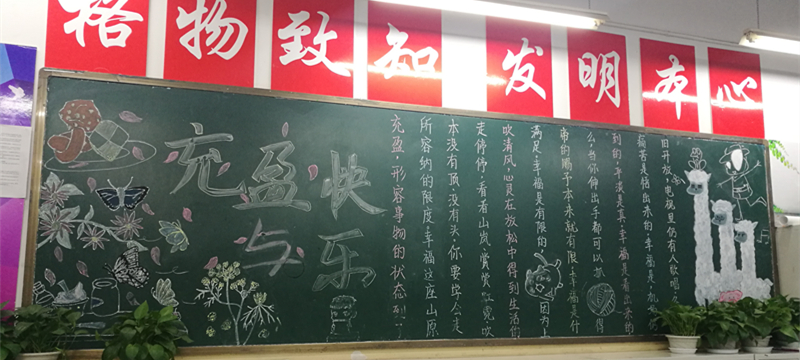 格物致知 发明本心
充盈
与
快乐
充盈,形容事物的状态到
所容纳的限度,幸福这座山,原
本没有顶、没有头,你要学会走
走停停,看看山岚,赏赏虹霓,吹
吹清风,心灵在放松中得到生活的
满足,幸福是有限的,因为上
帝的赐予本来就有限,幸福是什
么,当你伸出手都可以抓得
到的,平淡是真,幸福是看出来的
痛苦是悟出来的,幸福是
旧开放,电视里仍有人歌唱